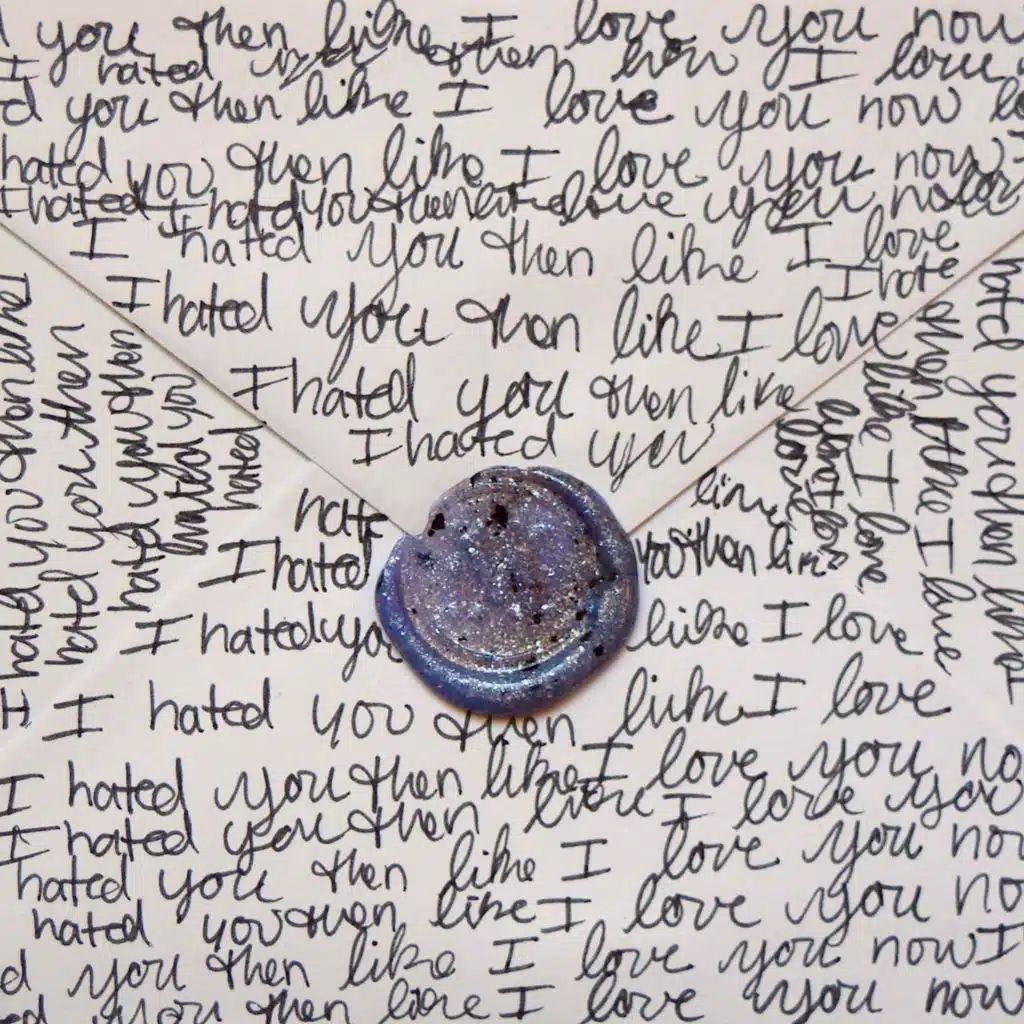 you then like I love you now
I hated then I love
d you then like I love you now
hated you then like I love you now
I hated I hated you then love you
I hated you then like I love
I hate
I hated you then like I love
I hated you then like
I hated you
hate
like
I hated
you then like
I hated you
like I love
I hated you then like I love
I hated you then like I love you no
I hated you then like I love you
hated you then like I love you no
hated you then like I love you no
d you then like I love you now I
ed you then like I love you now
I hated you then like I
hated you then
hated you then
hated you
hated
hated you then like I
then like I love
like I love
love